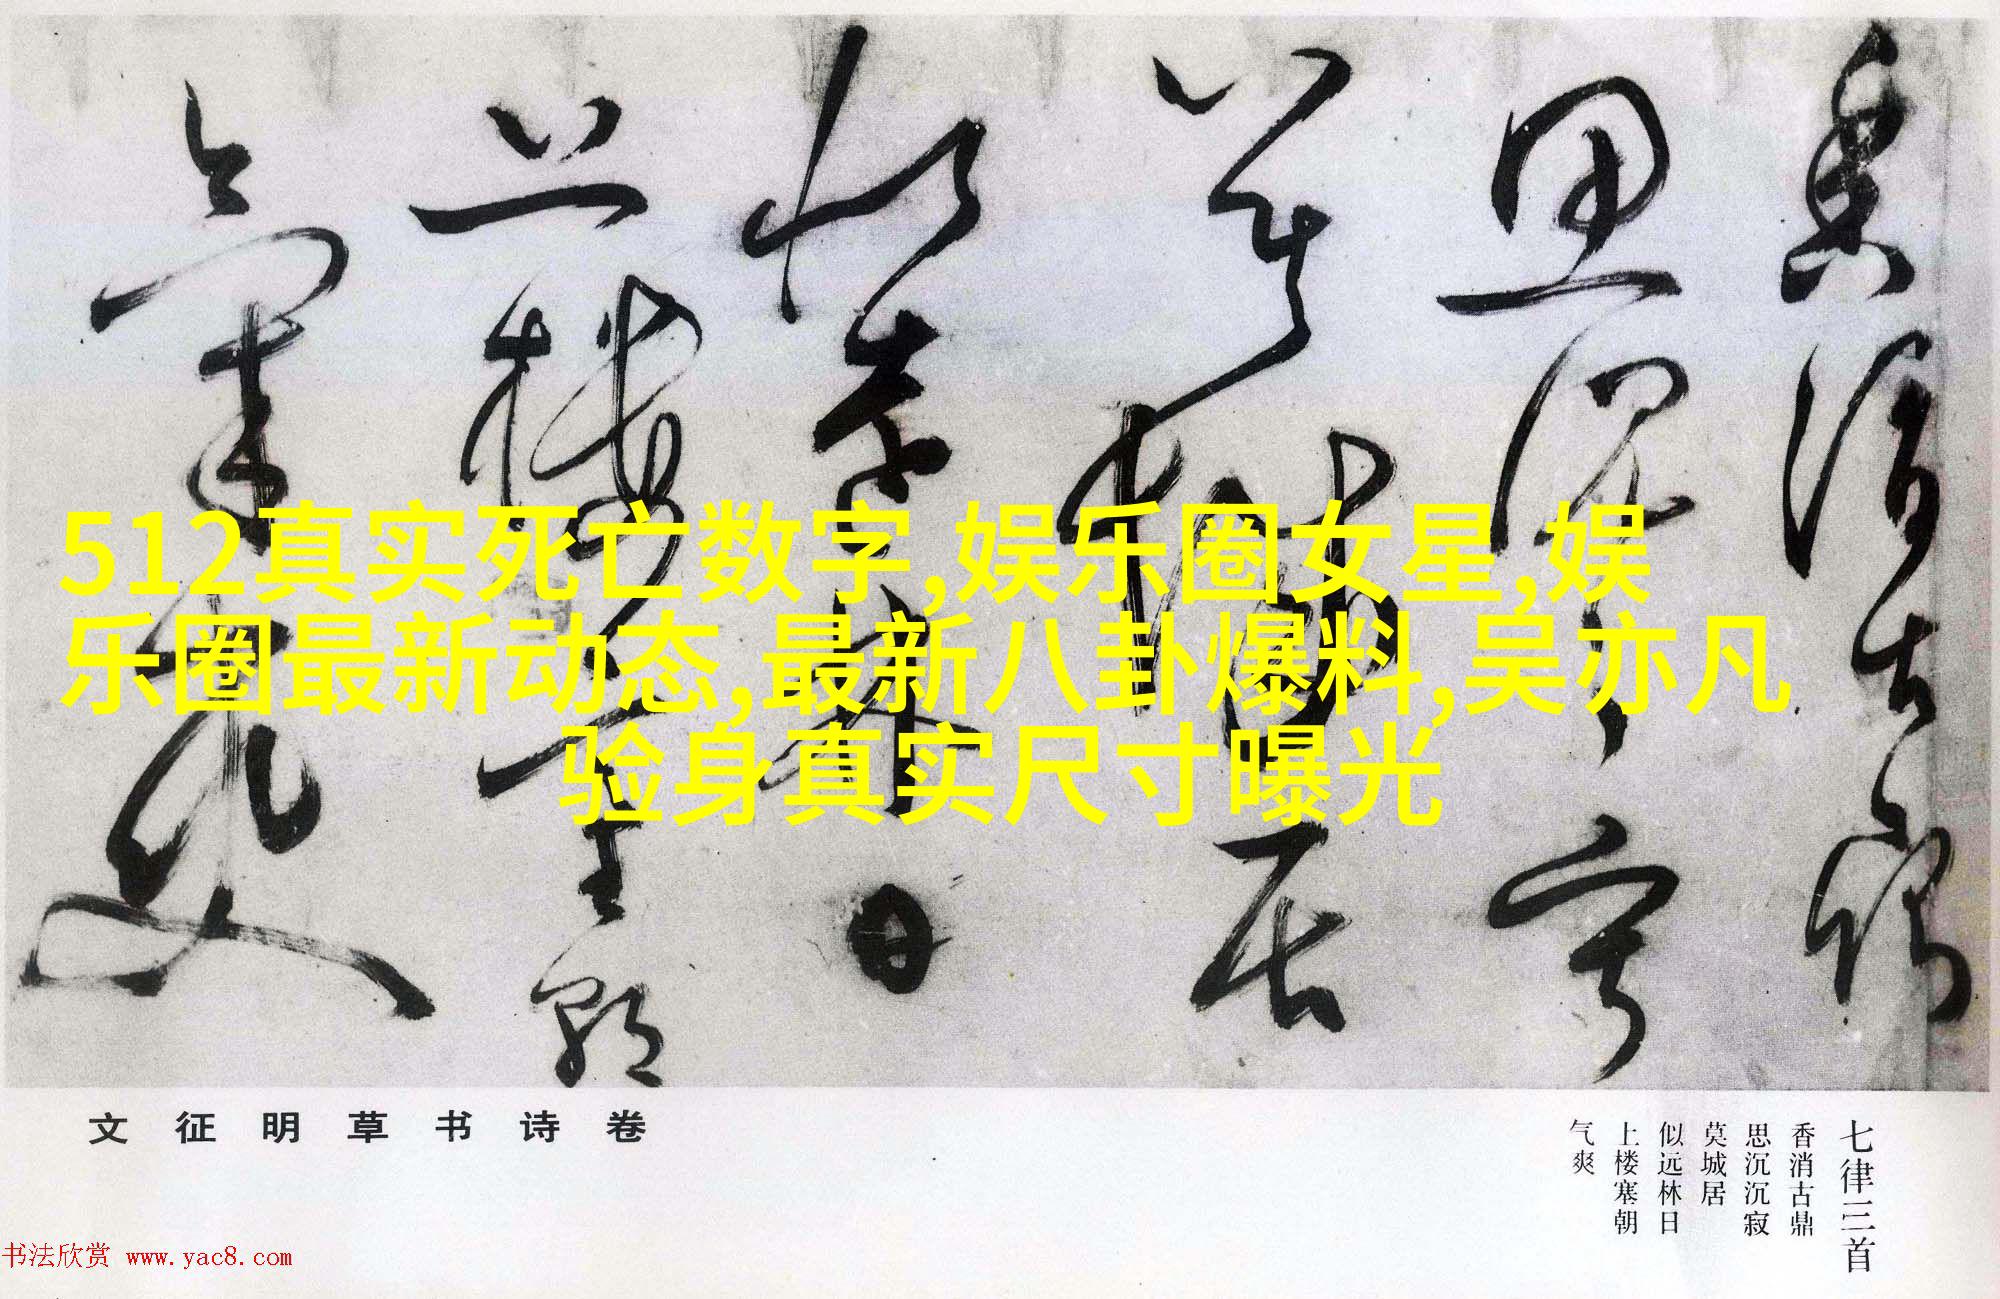 512真实死亡数字,娱乐圈女星,娱
乐圈最新动态,最新八卦爆料,吴亦凡
验身真实尺寸曝光
香消古鼎
思沉沉寂
莫城居
似远林日
上楼塞朝
气爽
文征明草书诗卷
七律三首
香消古鼎
思沉沉寂
莫城居
似远林日
上楼塞朝
气爽
书法欣赏 www.yac8.com